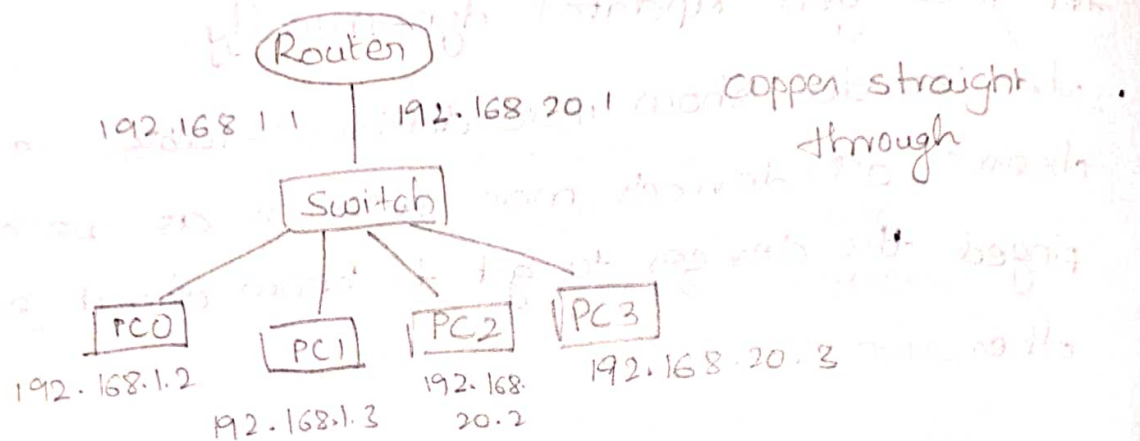 Router
192.168 1 1
192.168.20.1
copper straight
through
Switch
PC0
PC1
PC2
PC3
192.168.1.2
192.168.1.3
192.168.
20.2
192.168.20.3